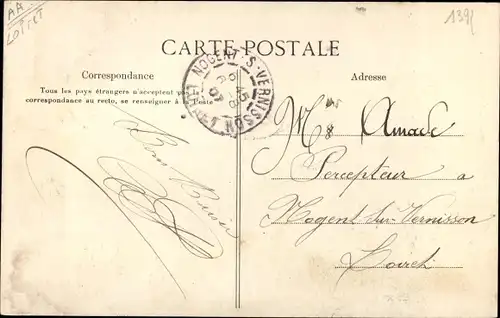 AA
LOIRET
1391
CARTE POSTALE
Correspondance
Tous les pays étrangers n'acceptent pas
correspondance au recto, se renseigner à la Poste
NOGENT-S-VERNISSON
LOIRET
Bon Baiser
Adresse
Mr Amade
Percepteur a
Nogent sur Vernisson
Loiret